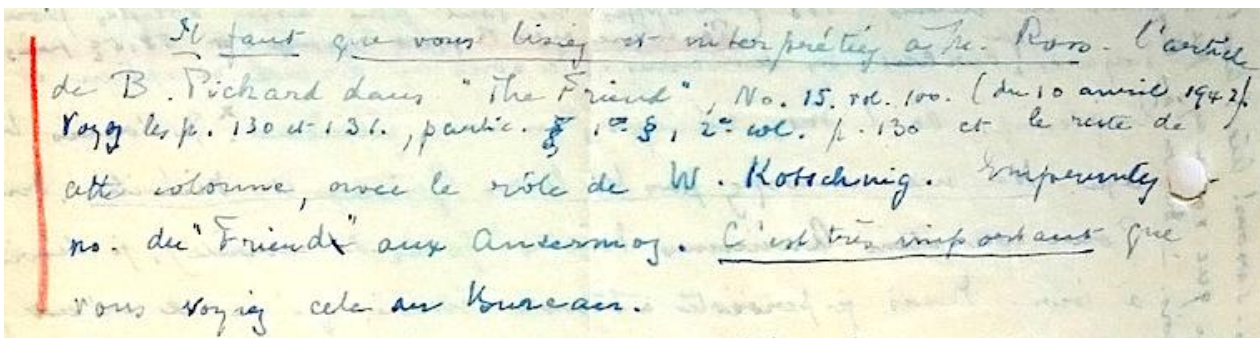 Il faut que vous lisiez et interprétiez à M. Ross. l'article
de B. Pichard dans "The Friend", No. 15. vol. 100. (du 10 avril 1942).
Voyez les p. 130 et 131., partic. 1er §, 2e col. p. 130 et le reste de
cette colonne, avec le rôle de W. Kotschnig. Empruntez
no. du "Friend" aux Ansermoz. C'est très important que
vous voyiez cela au Bureau.